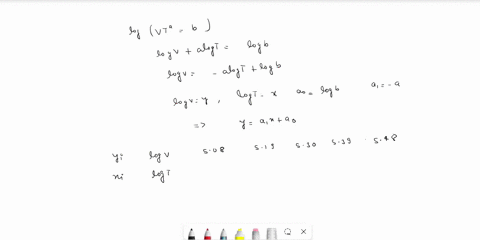 log (VTᵃ = b)
log V + a log T = log b
log V = - a log T + log b
log V = y, log T - x a₀ = log b a₁ = - a
=> y = a₁x + a₀
yi log V 5.08 5.19 5.30 5.39 5.48
xi log T